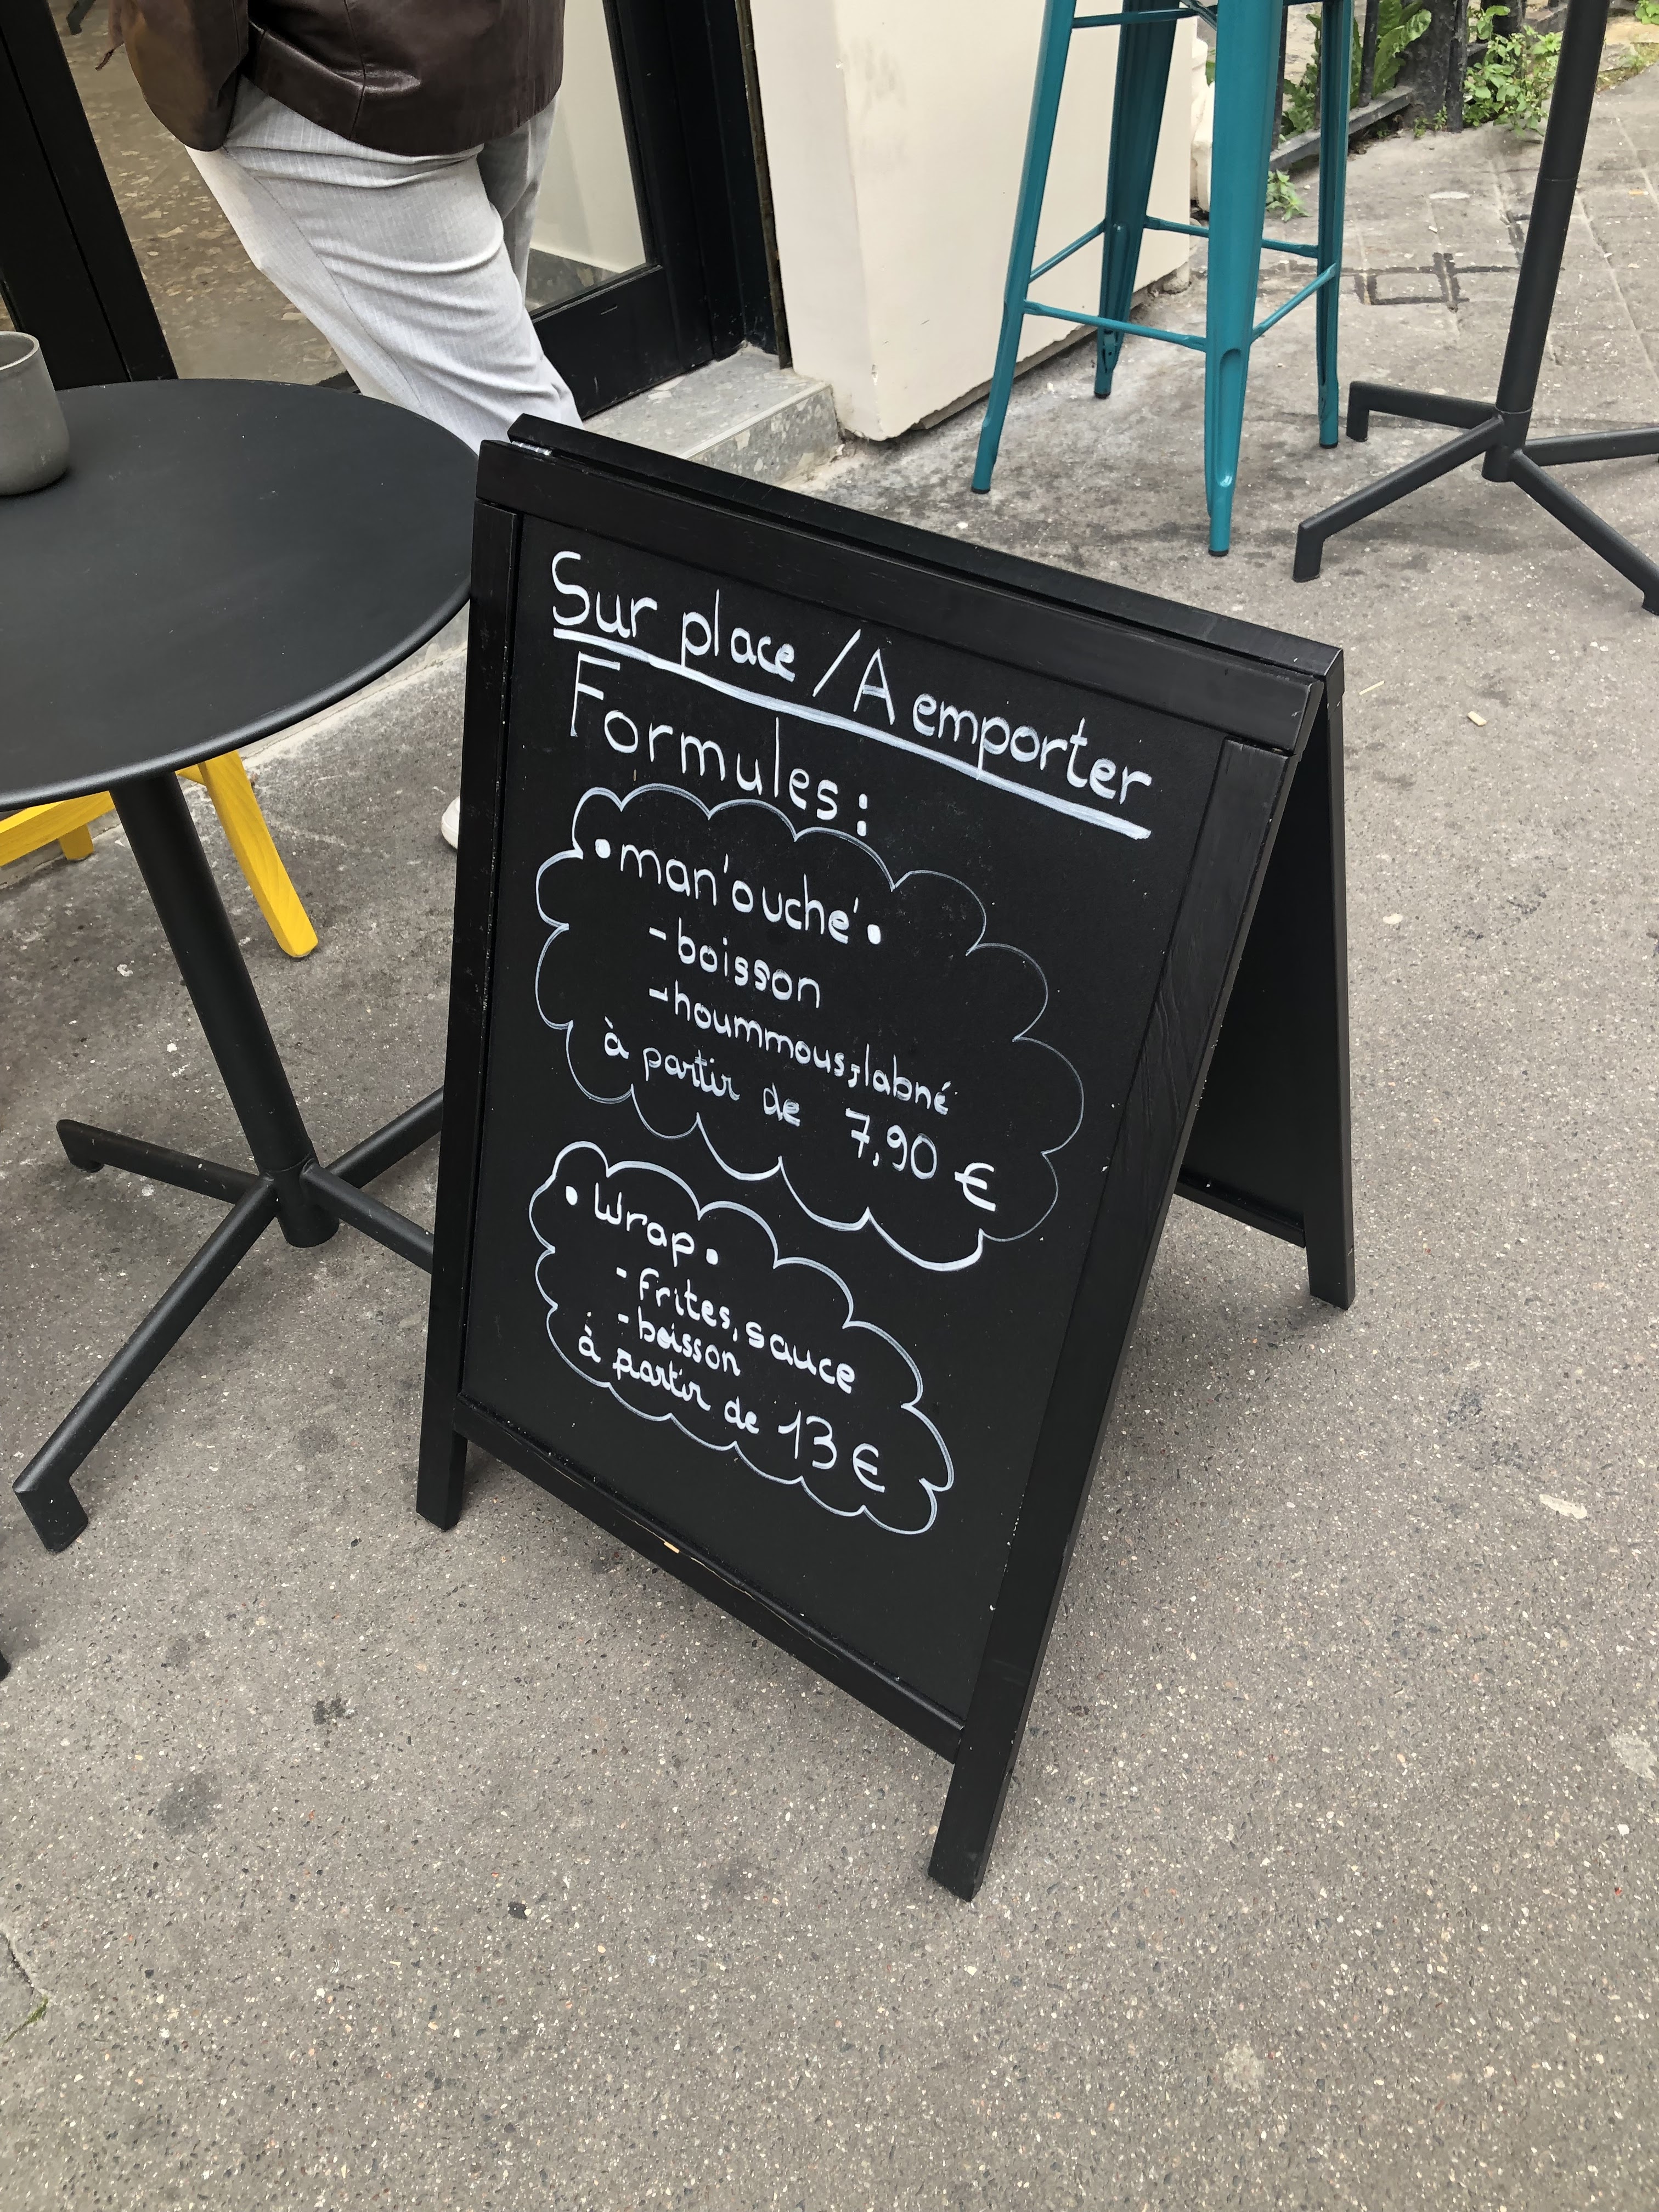 Sur place / A emporter
Formules :
• man'ouché •
- boisson
- hoummous, labné
à partir de 7,90 €
• Wrap •
- frites, sauce
- boisson
à partir de 13 €